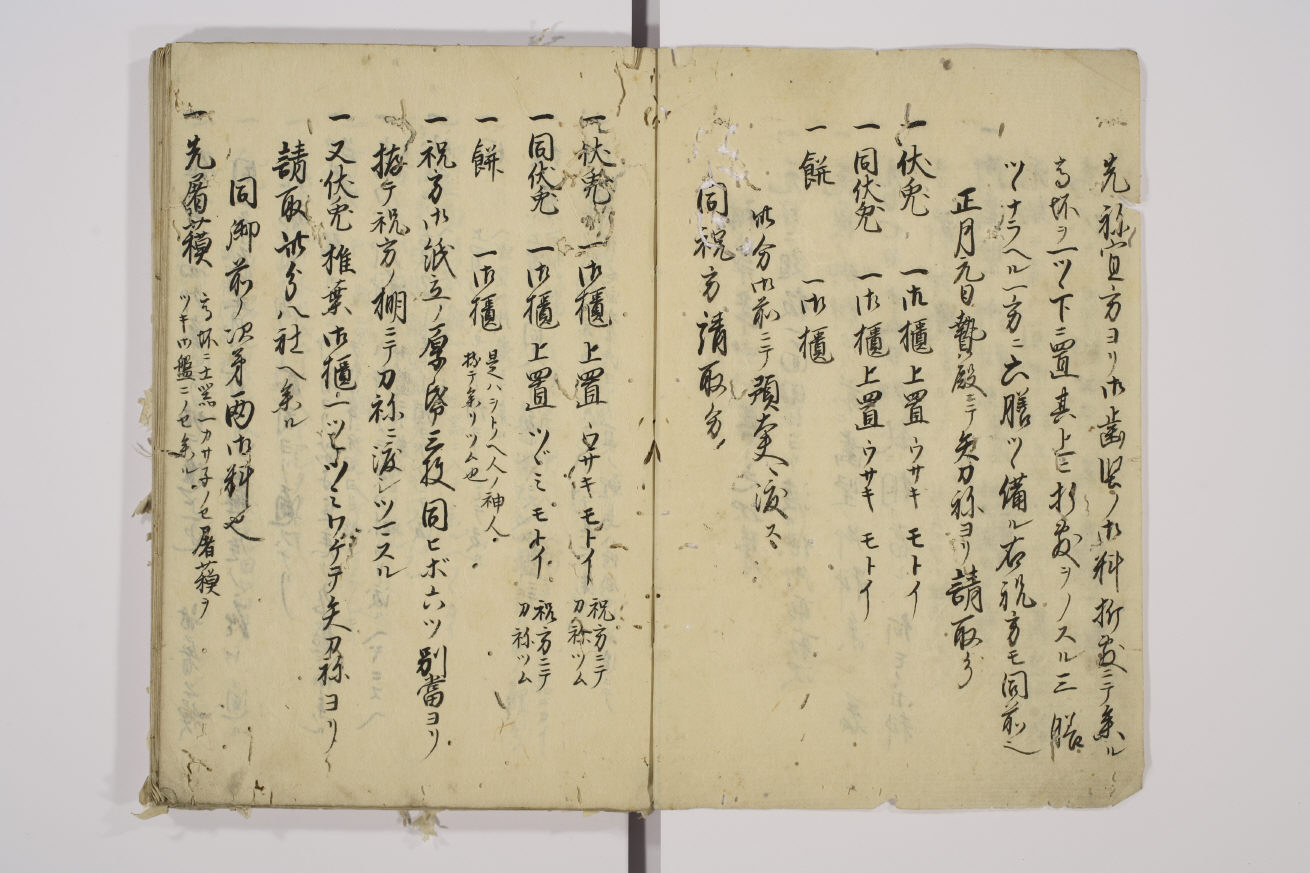 先祢宜方ヨリ御歯堅ノ御料折敷ニテ参ル
高坏ヲ一ツヽ下ニ置其上ニ折敷ヲノスル三膳
ツヽナラヘル一方ニ六膳ツヽ備ル右祝方モ同前也
正月元日贄殿ニテ矢刀祢ヨリ請取分
一伏兎 一御櫃上置ウサキモトイ
一同伏兎 一御櫃上置ウサキモトイ
一餅 一御櫃
此分御前ニテ預大夫ヘ渡ス
同祝方請取分
一伏兎 一御櫃上置ウサキモトイ 祝方ニテ
刀祢ツム
一同伏兎 一御櫃上置ツグミモトイ 祝方ニテ
刀祢ツム
一餅 一御櫃 是ハシトノヘ人ノ神人
持テ参リツム也
一祝方御紙立ノ厚紙三枚同ヒボ六ツ別當ヨリ
捧テ祝方ノ棚ニテ刀祢ニ渡シツヽマスル
一又伏兎椎葉御櫃一ツヒツツミワケテ矢刀祢ヨリ
請取此分八社ヘ参ル
同御前ノ次第両御料也
一先屠蘓 高坏ニ土器一カサ子ノセ屠蘓ヲ
ツキ御盤ニノセ参ル